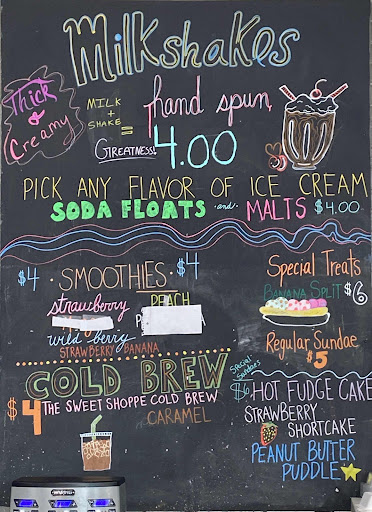 Milkshakes
Thick
&
Creamy
MILK
+
SHAKE
=
GREATNESS!
hand spun
4.00
PICK ANY FLAVOR OF ICE CREAM
SODA FLOATS and MALTS $4.00
$4 · SMOOTHIES · $4
strawberry
PEACH
P
wild berry
STRAWBERRY BANANA
Special Treats
BANANA SPLIT $6
Regular Sundae
$5
COLD BREW
$4 THE SWEET SHOPPE COLD BREW
CARAMEL
Special
Sundaes
$6 HOT FUDGE CAKE
STRAWBERRY
SHORTCAKE
PEANUT BUTTER
PUDDLE